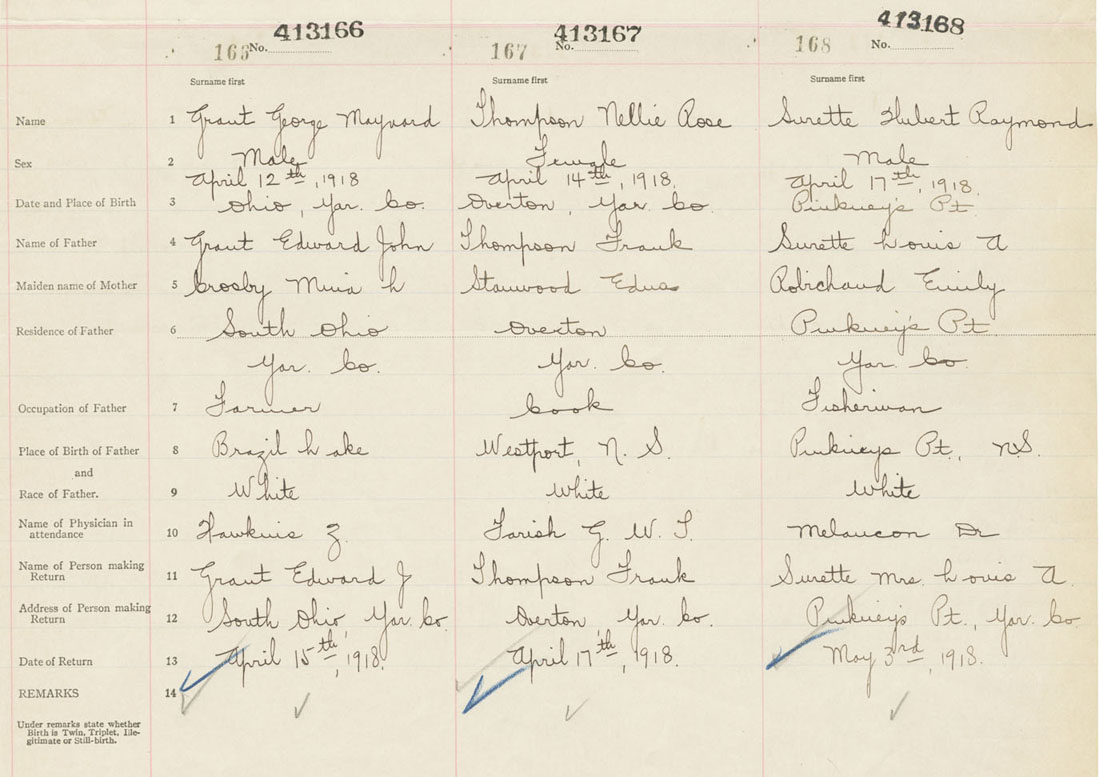 413166 413167 413168
165 No. 167 No. 168 No.
Surname first Surname first Surname first
Name 1 Grant George Maynard Thompson Nellie Rose Surette Hubert Raymond
Sex 2 Male Female Male
April 12th, 1918 April 14th, 1918. April 17th, 1918.
Date and Place of Birth 3 Ohio, Yar. Co. Overton, Yar. Co. Pinkney's Pt.
Name of Father 4 Grant Edward John Thompson Frank Surette Louis A
Maiden name of Mother 5 Crosby Mina L Stanwood Edna Robichaud Emily
Residence of Father 6 South Ohio Overton Pinkney's Pt.
Yar. Co. Yar. Co. Yar. Co.
Occupation of Father 7 Farmer Cook Fisherman
Place of Birth of Father 8 Brazil Lake Westport, N. S. Pinkneys Pt., N.S.
and
Race of Father. 9 White White White
Name of Physician in
attendance 10 Hawkins Z. Farish G. W. T. Melancon Dr
Name of Person making
Return 11 Grant Edward J Thompson Frank Surette Mrs. Louis A.
Address of Person making
Return 12 South Ohio, Yar. Co. Overton, Yar. Co. Pinkney's Pt., Yar. Co.
Date of Return 13 April 15th, 1918. April 17th, 1918. May 3rd, 1918.
REMARKS 14
Under remarks state whether
Birth is Twin, Triplet, Ille-
gitimate or Still-birth.